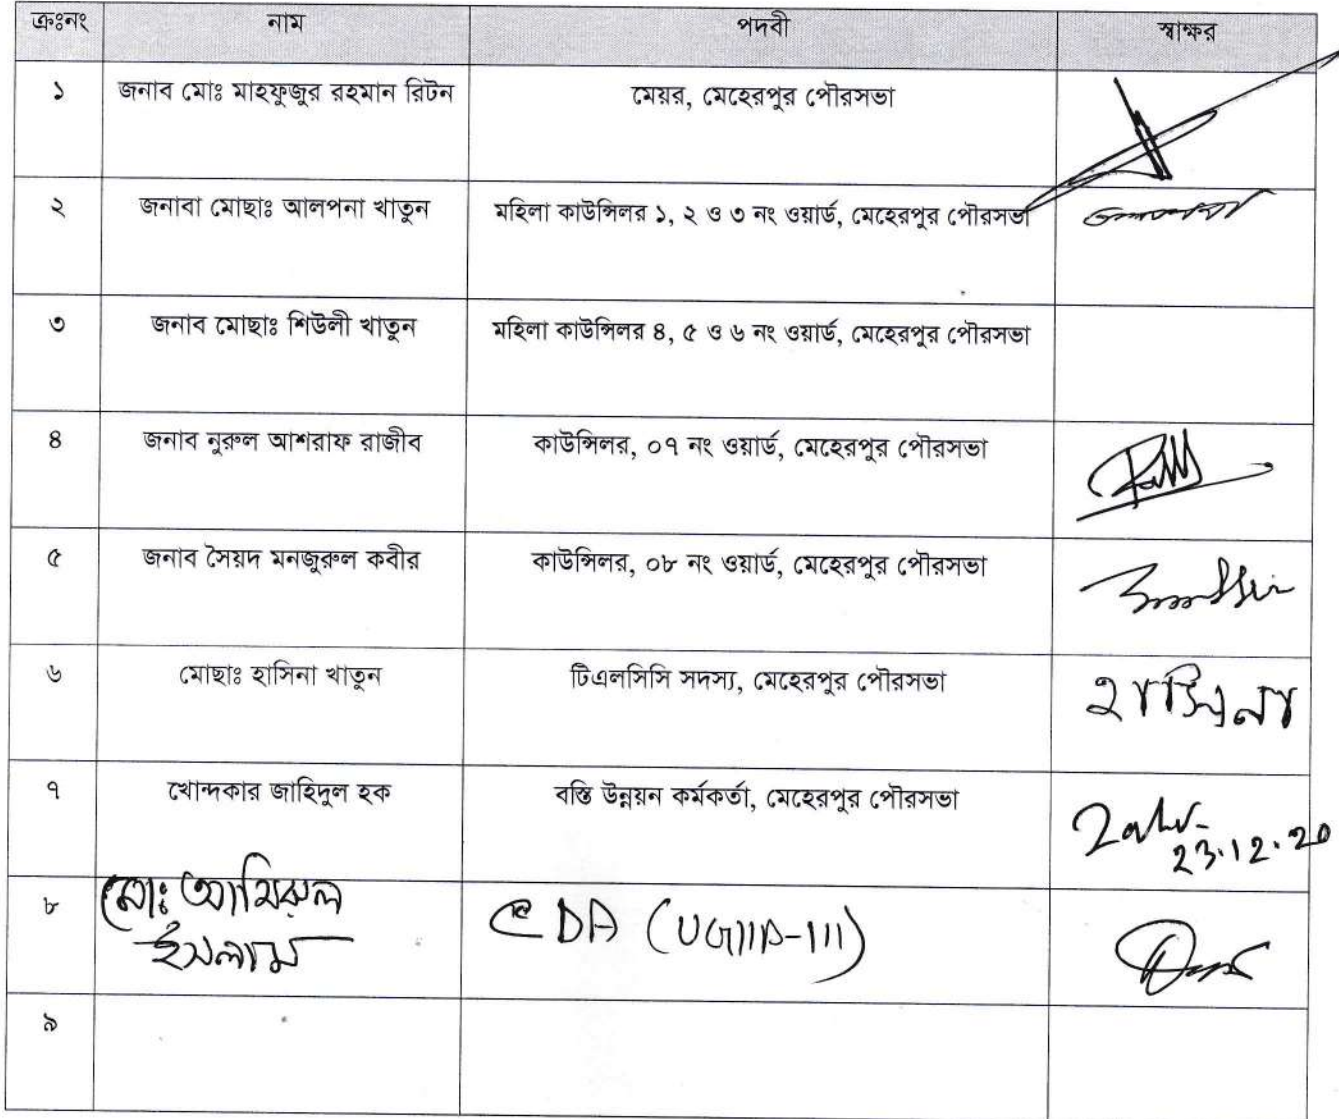 ক্রঃনং নাম পদবী স্বাক্ষর
১ জনাব মোঃ মাহফুজুর রহমান রিটন মেয়র, মেহেরপুর পৌরসভা
২ জনাবা মোছাঃ আলপনা খাতুন মহিলা কাউন্সিলর ১, ২ ও ৩ নং ওয়ার্ড, মেহেরপুর পৌরসভা
৩ জনাব মোছাঃ শিউলী খাতুন মহিলা কাউন্সিলর ৪, ৫ ও ৬ নং ওয়ার্ড, মেহেরপুর পৌরসভা
৪ জনাব নুরুল আশরাফ রাজীব কাউন্সিলর, ০৭ নং ওয়ার্ড, মেহেরপুর পৌরসভা
৫ জনাব সৈয়দ মনজুরুল কবীর কাউন্সিলর, ০৮ নং ওয়ার্ড, মেহেরপুর পৌরসভা
৬ মোছাঃ হাসিনা খাতুন টিএলসিসি সদস্য, মেহেরপুর পৌরসভা হাসিনা
৭ খোন্দকার জাহিদুল হক বস্তি উন্নয়ন কর্মকর্তা, মেহেরপুর পৌরসভা
23.12.20
৮ মোঃ আমিরুল CDA (UGIIP-III)
ইসলাম
৯